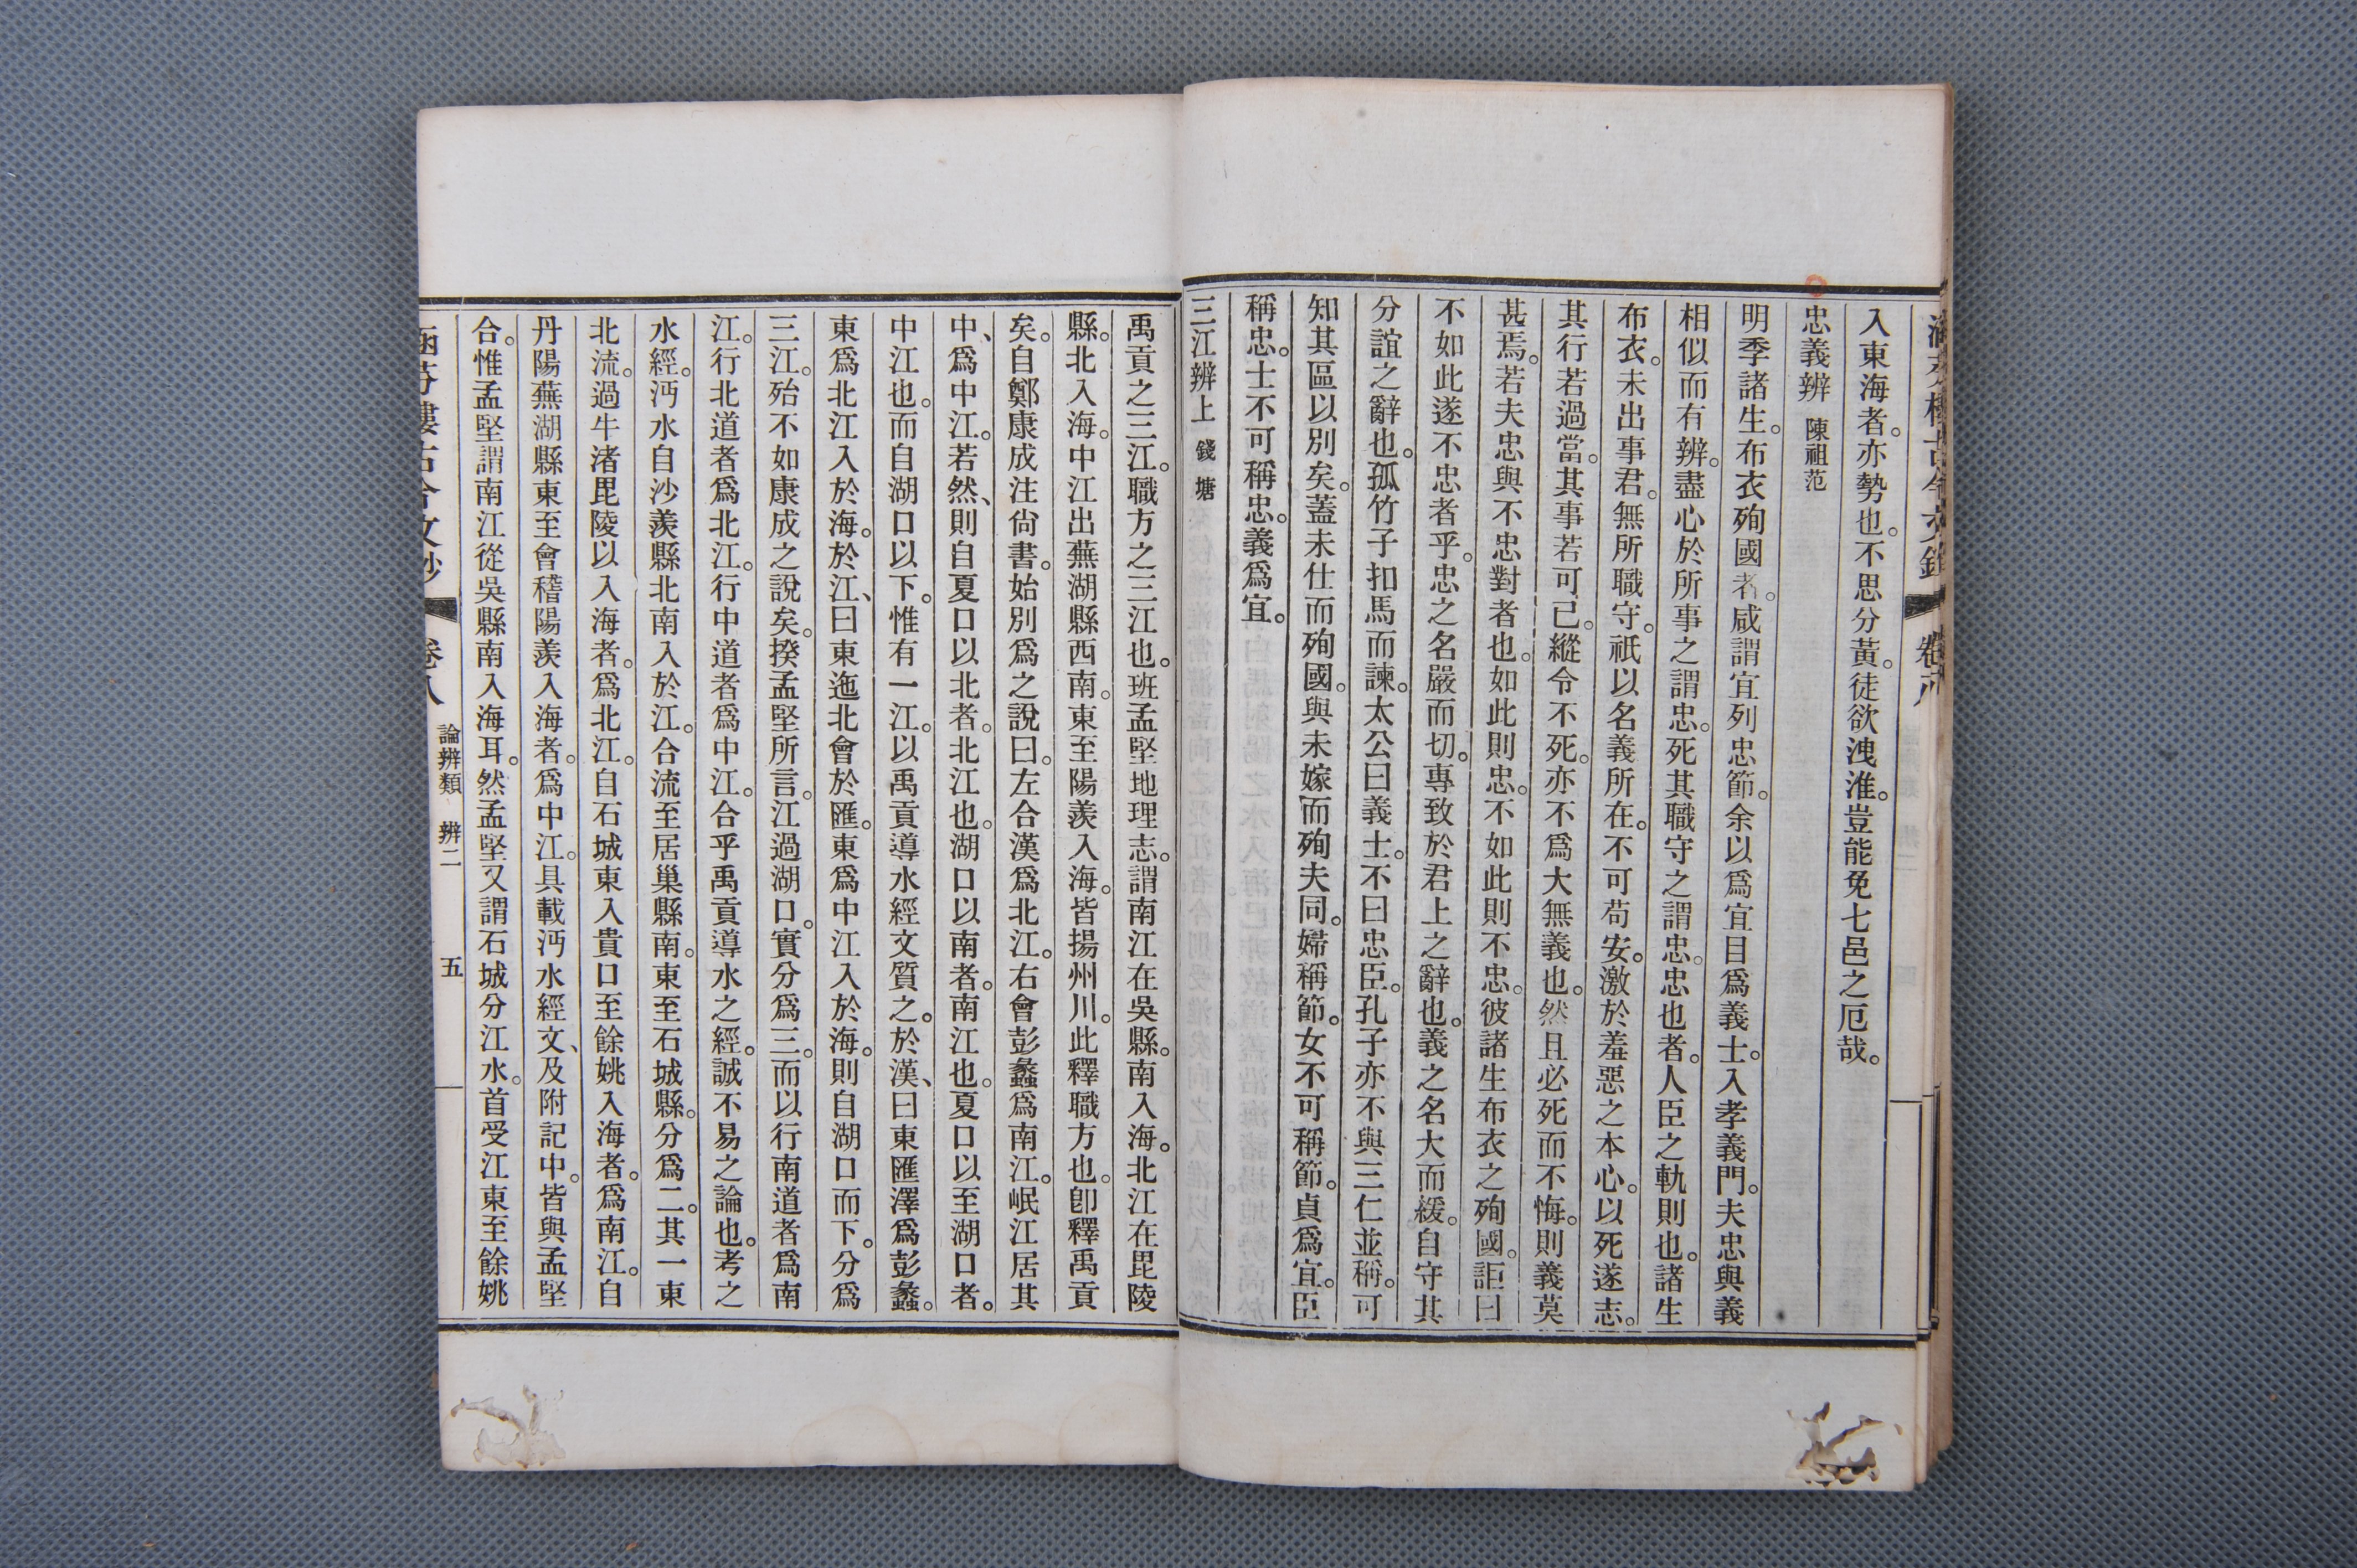 入東海者。亦勢也。不思分黃。徒欲洩淮。豈能免七邑之厄哉。
忠義辨 陳祖范
明季諸生。布衣殉國者。咸謂宜列忠節。余以爲宜目爲義士。入孝義門。夫忠與義
相似而有辨。盡心於所事之謂忠。死其職守之謂忠。忠也者。人臣之軌則也。諸生
布衣。未出事君。無所職守。祇以名義所在。不可苟安。激於羞惡之本心。以死遂志。
其行若過當。其事若可已。縱令不死。亦不爲大無義也。然且必死而不悔。則義莫
甚焉。若夫忠與不忠對者也。如此則忠。不如此則不忠。彼諸生布衣之殉國。詎曰
不如此遂不忠者乎。忠之名嚴而切。專致於君上之辭也。義之名大而緩。自守其
分誼之辭也。孤竹子扣馬而諫。太公曰義士。不曰忠臣。孔子亦不與三仁並稱。可
知其區以別矣。蓋未仕而殉國。與未嫁而殉夫同。婦稱節。女不可稱節。貞爲宜。臣
稱忠。士不可稱忠。義爲宜。
三江辨上 錢塘
禹貢之三江。職方之三江也。班孟堅地理志。謂南江在吳縣。南入海。北江在毘陵
縣。北入海。中江出蕪湖縣西南。東至陽羨入海。皆揚州川。此釋職方也。卽釋禹貢
矣。自鄭康成注尙書。始別爲之說曰。左合漢爲北江。右會彭蠡爲南江。岷江居其
中、爲中江。若然、則自夏口以北者。北江也。湖口以南者。南江也。夏口以至湖口者。
中江也。而自湖口以下。惟有一江。以禹貢導水經文質之。於漢、曰東匯澤爲彭蠡。
東爲北江入於海。於江、曰東迤北會於匯。東爲中江入於海。則自湖口而下。分爲
三江。殆不如康成之說矣。揆孟堅所言。江過湖口。實分爲三。而以行南道者爲南
江。行北道者爲北江。行中道者爲中江。合乎禹貢導水之經。誠不易之論也。考之
水經。沔水自沙羨縣北南入於江。合流至居巢縣南。東至石城縣。分爲二。其一東
北流。過牛渚毘陵以入海者。爲北江。自石城東入貴口至餘姚入海者。爲南江。自
丹陽蕪湖縣東至會稽陽羨入海者。爲中江。具載沔水經文、及附記中。皆與孟堅
合。惟孟堅謂南江從吳縣南入海耳。然孟堅又謂石城分江水。首受江東至餘姚
涵芬樓古今文鈔 卷八 論辨類 辨二 五